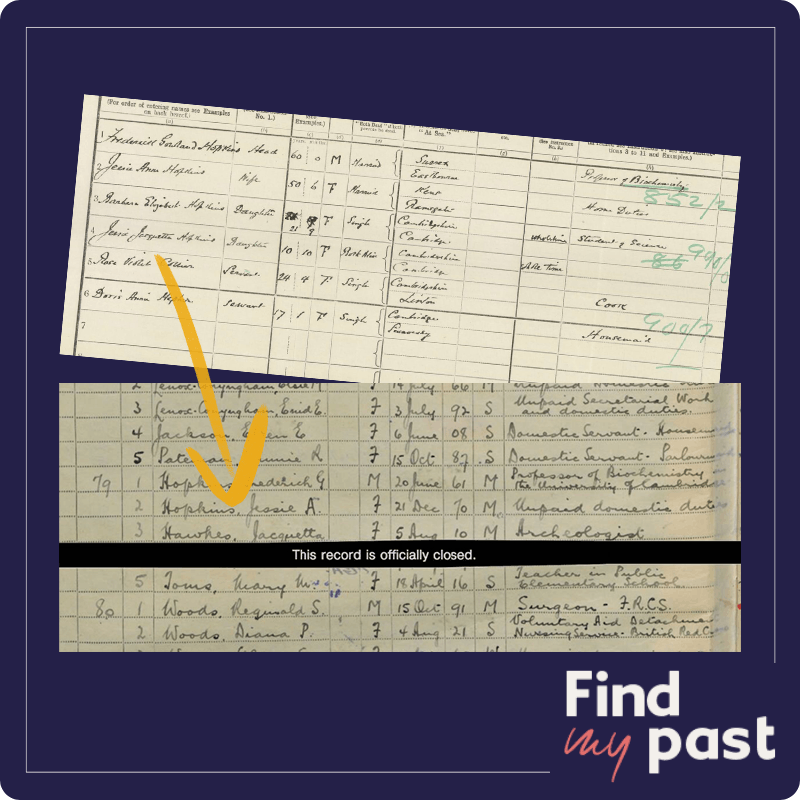 (For order of entry see Examples
on back hereof.)
(a)
No. 1.)
Examples.)
At Sea."
(b)
tions 3 to 11 and Examples.)
1 Frederick Gowland Hopkins Head 60 0 M Married Sussex Eastbourne Professor of Biochemistry
852/2
2 Jessie Ann Hopkins Wife 50 6 F Married Kent Ramsgate Home Duties
3 Barbara Elizabeth Hopkins Daughter 21 9 F Single Cambridgeshire Cambridge Student of Science
4 Jessie Jacquetta Hopkins Daughter 10 10 F Both Alive Cambridgeshire Cambridge Whole Time
5 Rose Violet Collier Servant 24 4 F Single Cambridgeshire Linton Cook
900/7
6 Doris Annie Servant 17 1 F Single Cambridge Housemaid
7
3 Lenox-Conyngham, Enid E. F 3 July 92 S Unpaid Secretarial Work
and domestic duties.
4 Jackson, E F 6 June 08 S Domestic Servant - Housem
5 F 15 Oct 87 S Domestic Servant - Parlourm
79 1 Hopkins, Frederick G M 20 June 61 M Professor of Biochemistry
the University of Cambridge
2 Hopkins, Jessie A. F 21 Dec 70 M Unpaid domestic duties
3 Hawkes, Jacquetta F 5 Aug 10 M Archeologist
This record is officially closed.
5 Toms, Mary M. F 18 April 16 S Teacher in Public
Elementary School
80 1 Woods, Reginald S. M 15 Oct 91 M Surgeon - F.R.C.S.
2 Woods, Diana P. F 4 Aug 21 S Voluntary Aid Detachmen
Nursing Service - British Red C
Find
my past